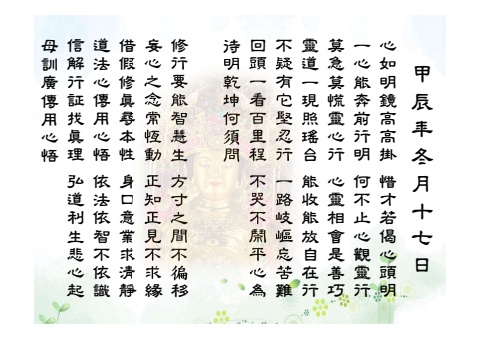 甲辰年冬月十七日
心如明鏡高高掛 惜才若偈心頭明
一心能奔前行明 何不止心觀靈行
莫急莫慌靈心行 心靈相會是善巧
靈道一現照瑤台 能收能放自在行
不疑有它堅忍行 一路岐嶇忘苦難
回頭一看百里程 不哭不鬧平心為
待明乾坤何須問
修行要能智慧生 方寸之間不徧移
妄心之念常恆動 正知正見不求緣
借假修眞尋本性 身口意業求清靜
道法心傳用心悟 依法依智不依識
信解行証找眞理 弘道利生悲心起
母訓廣傳用心悟